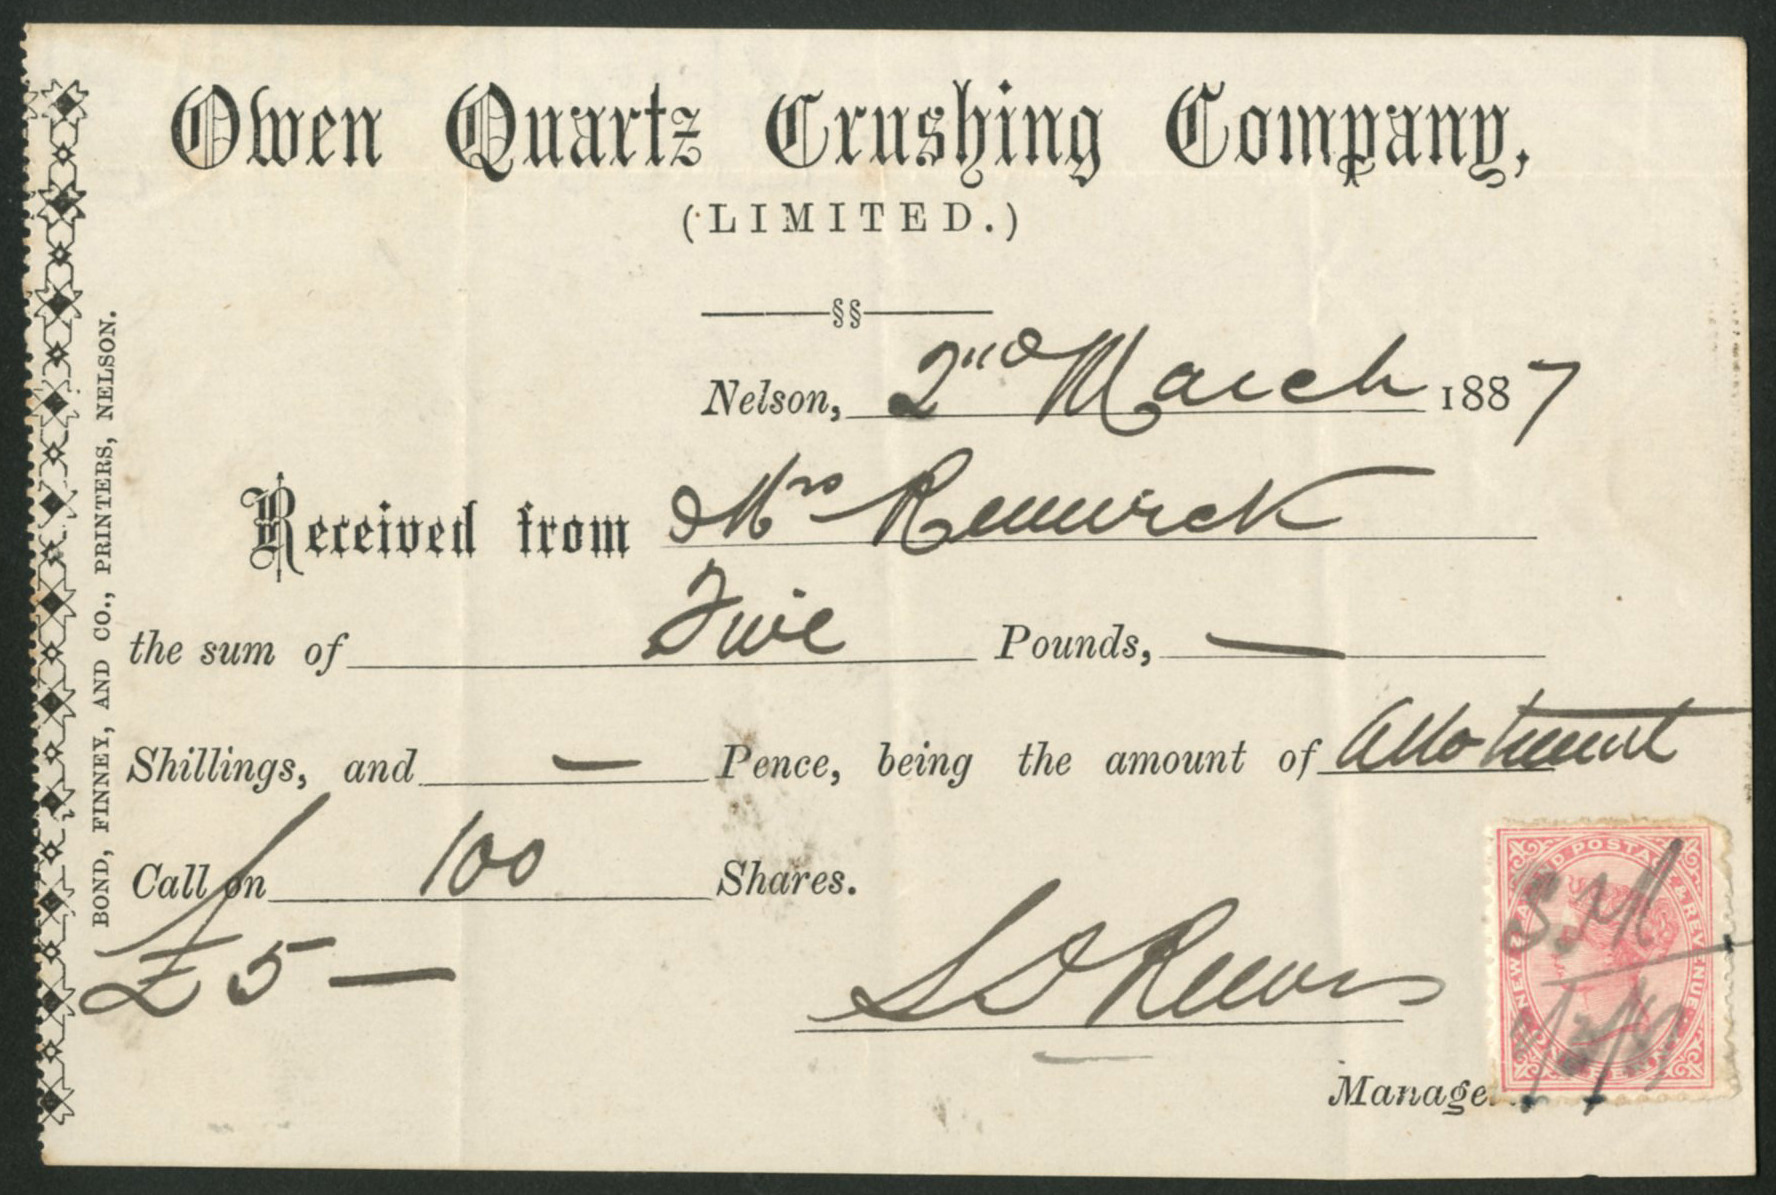 Owen Quartz Crushing Company,
(LIMITED.)
§§
Nelson, 2nd March 1887
Received from Mrs Renwick
the sum of Five Pounds, —
Shillings, and — Pence, being the amount of Allotment
Call on 100 Shares.
£5 —
Manager.
BOND, FINNEY, AND CO., PRINTERS, NELSON.
NEW ZEALAND POSTAGE & REVENUE
ONE PENNY